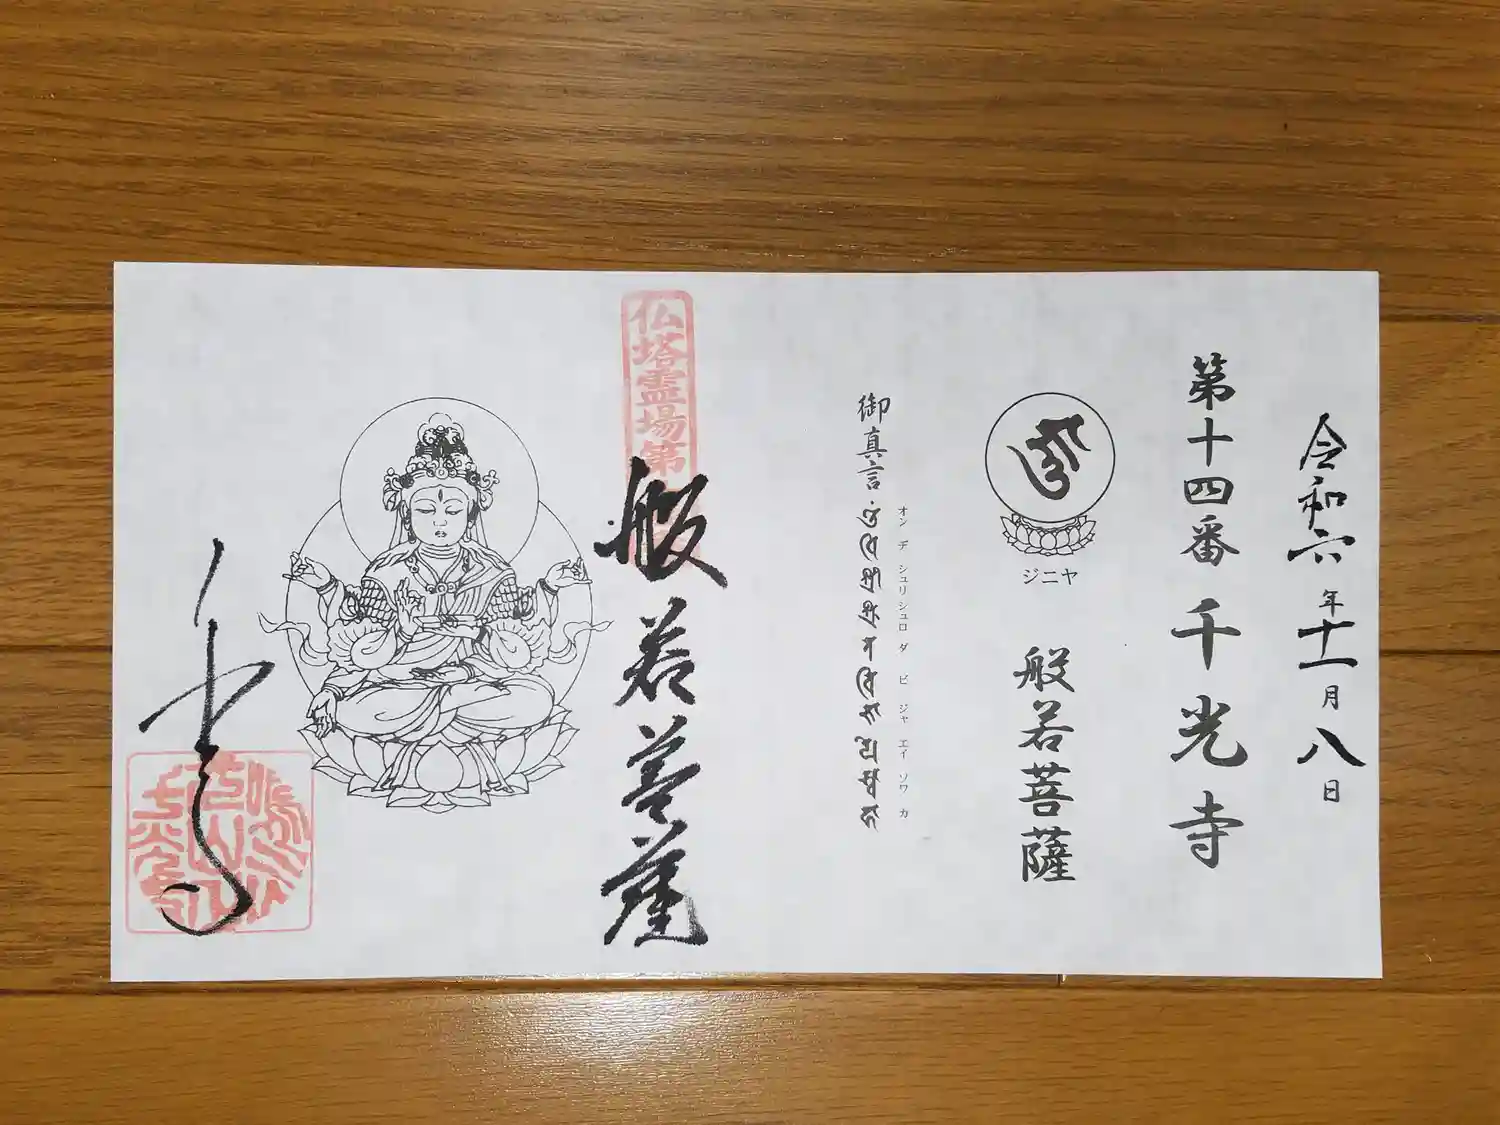 令和六年十一月八日
第十四番 千光寺
ジニヤ
般若菩薩
御真言
オン ヂ シュリ シュロ ダ ビ ジャ エイ ソワ カ
仏塔霊場第
般若菩薩